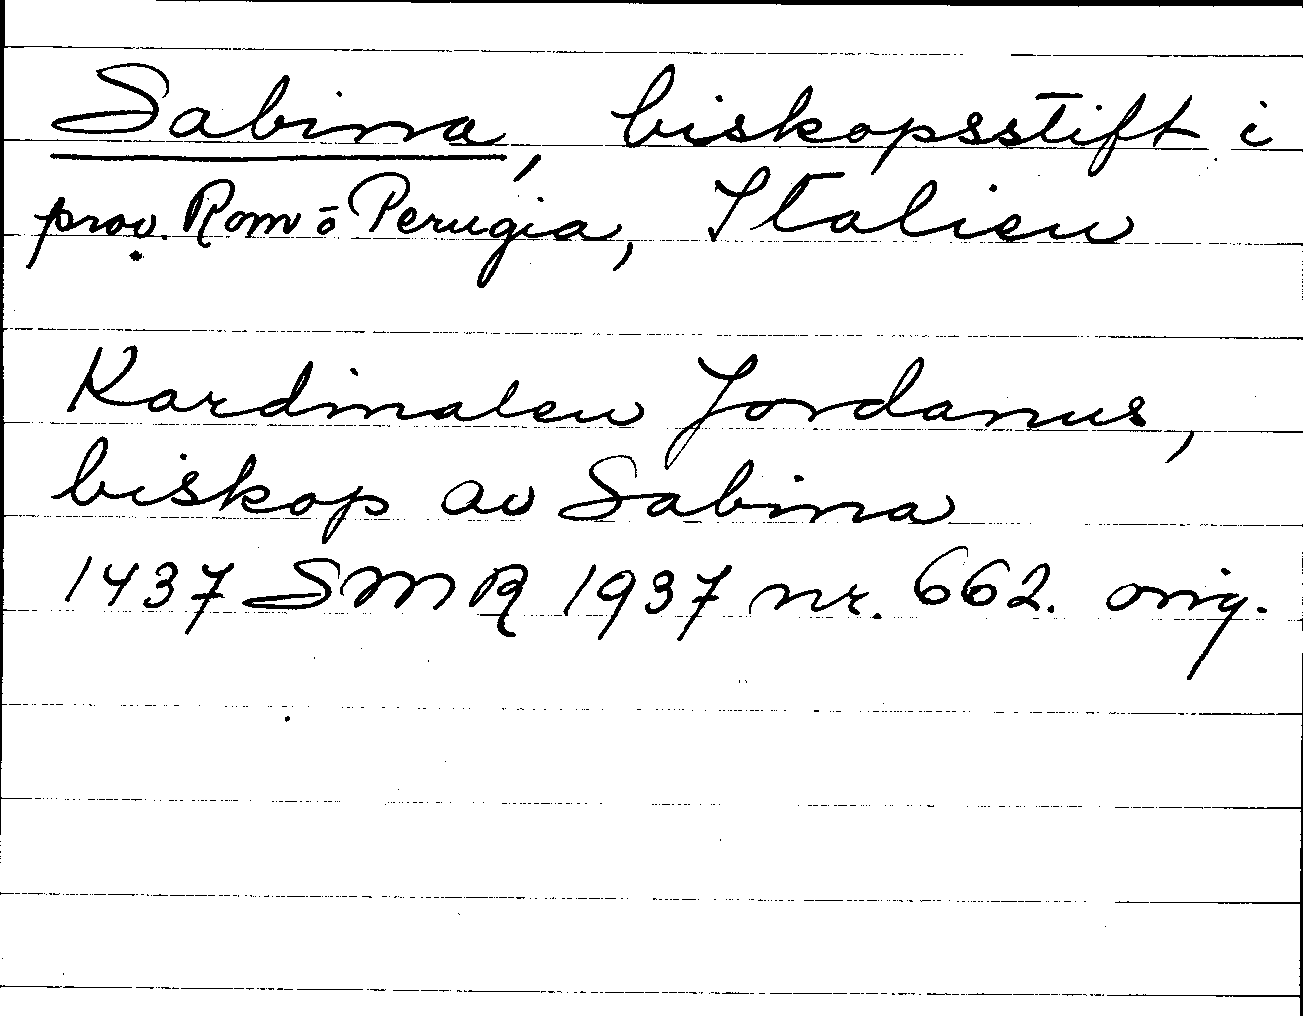 Sabina, biskopsstift i
prov. Rom ō Perugia, Italien
Kardinalen Jordanus,
biskop av Sabina
1437 SMR 1937 nr. 662. orig.